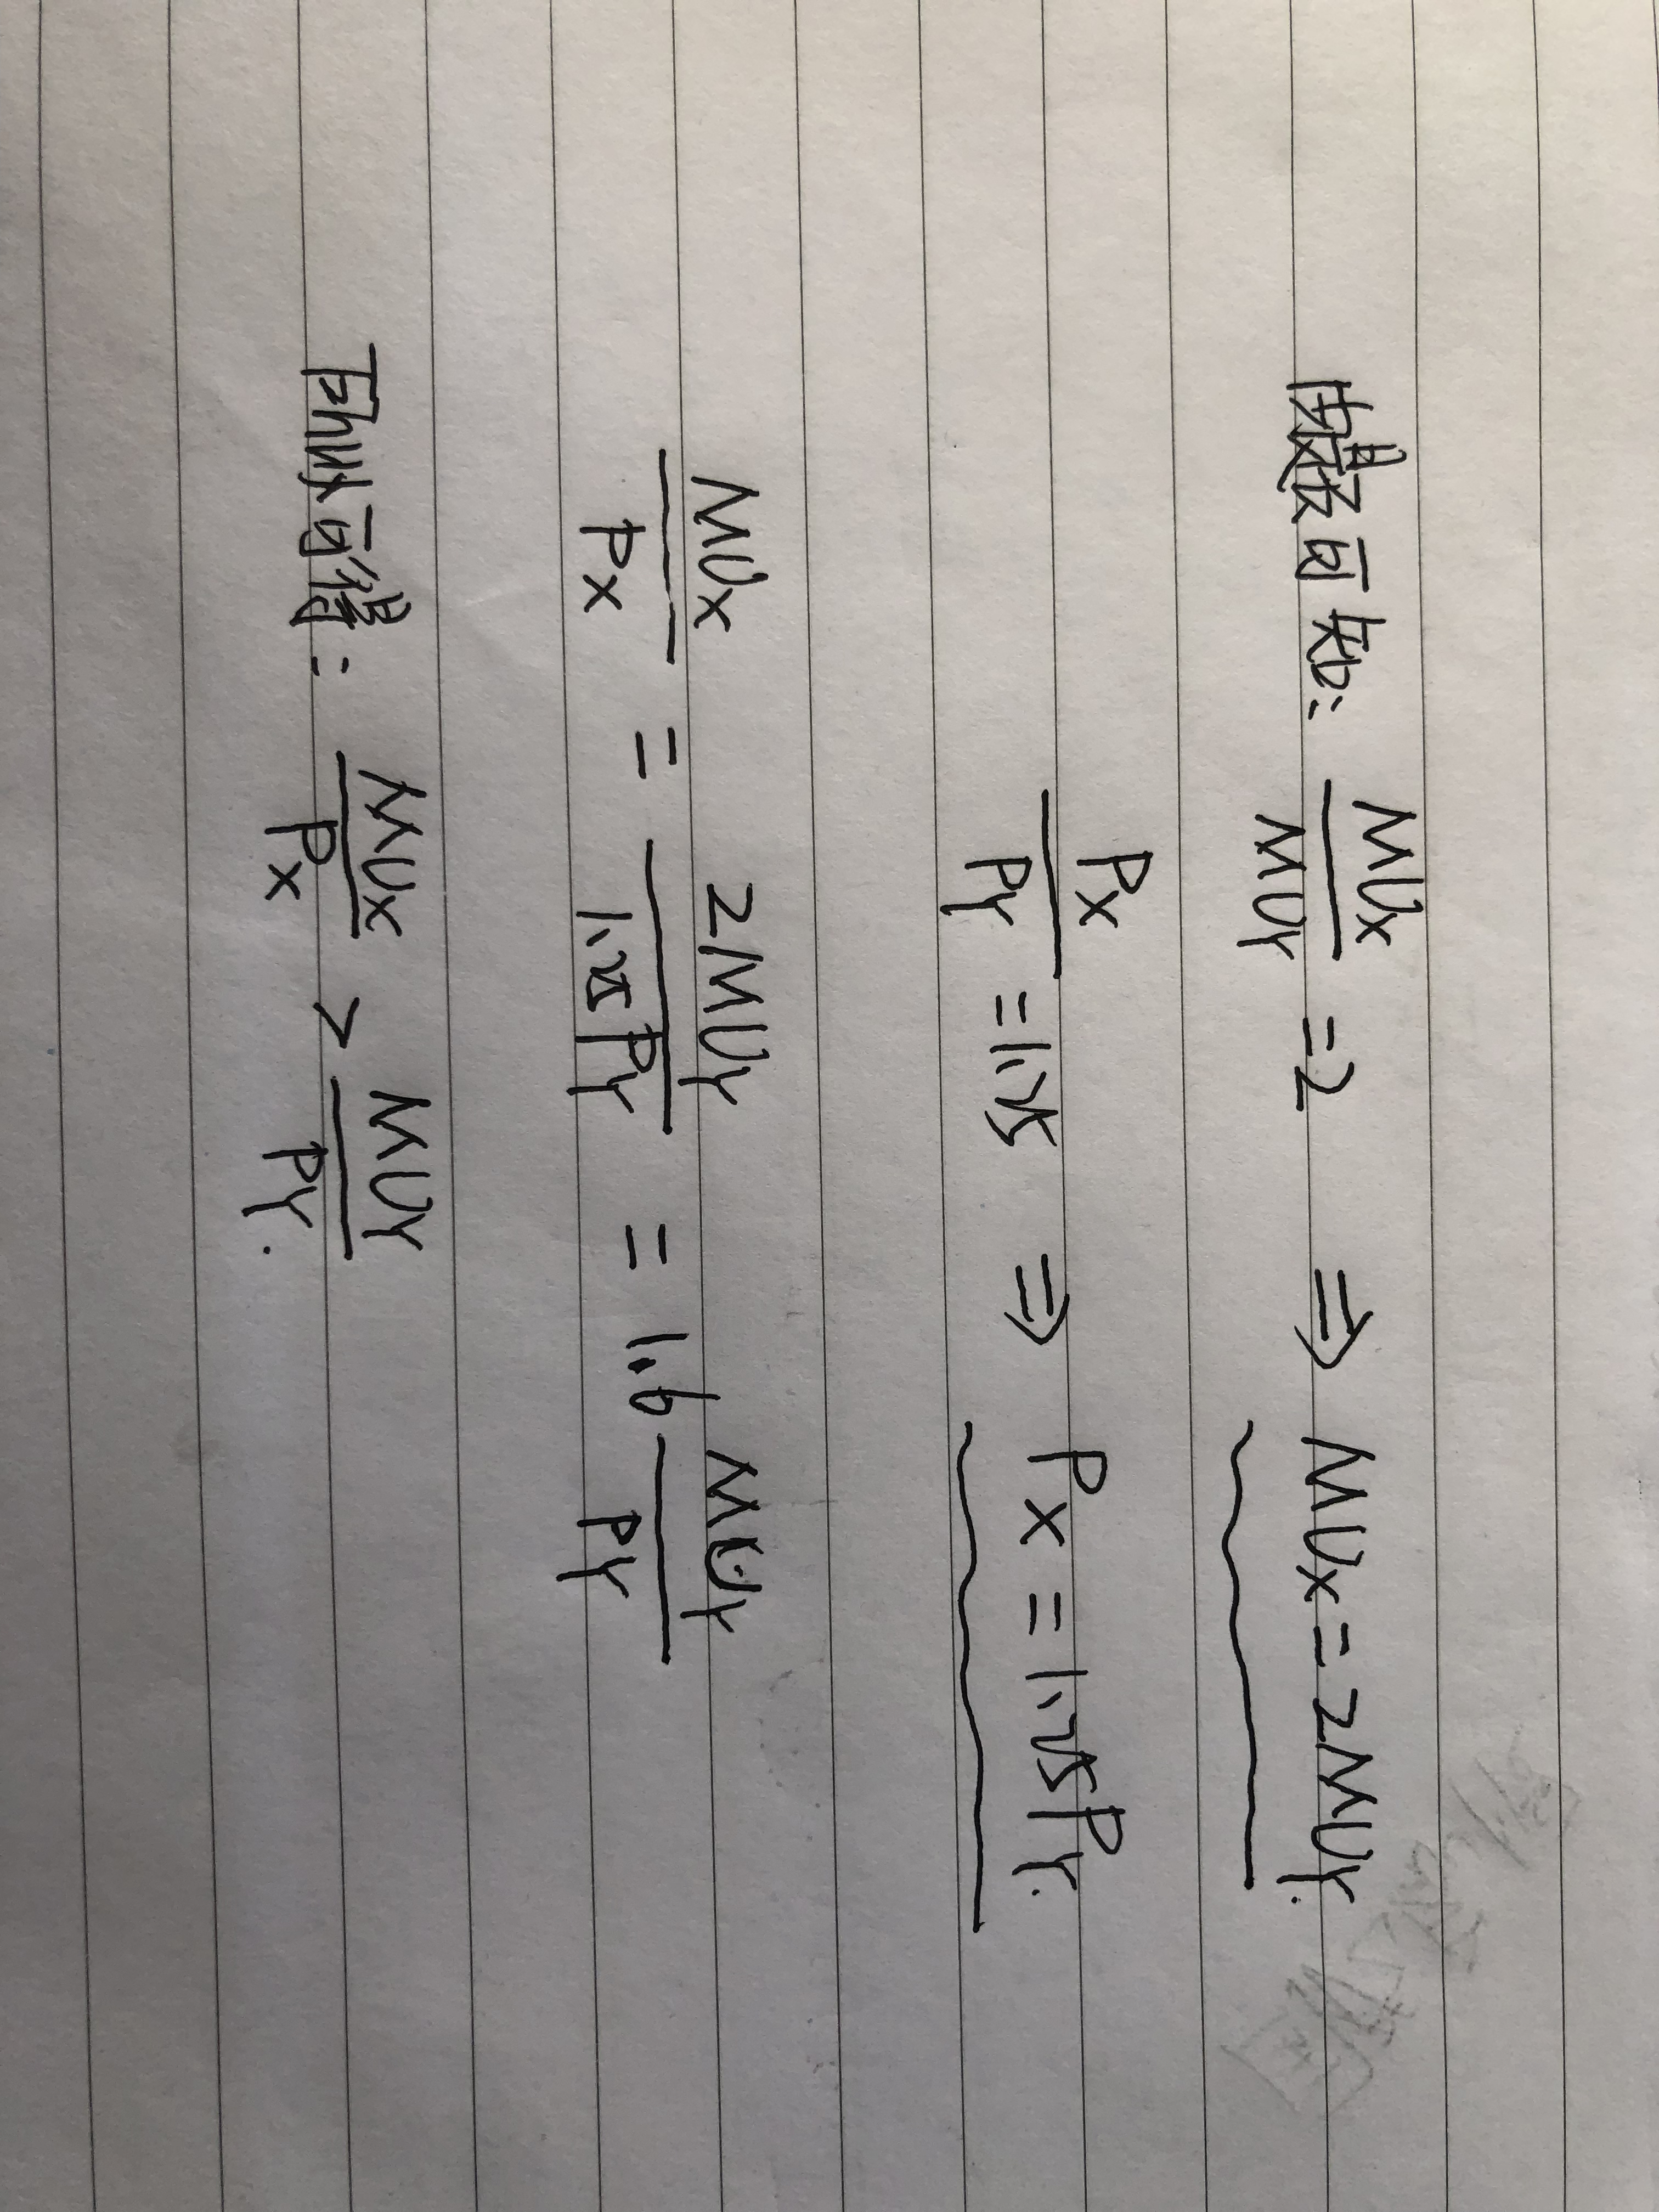 由教材可知: MUx/MUY = 2 ⇒ MUx = 2MUY.
Px/PY = 1.25 ⇒ Px = 1.25PY.
MUx/Px = 2MUY/1.25PY = 1.6 MUY/PY
可得: MUx/Px > MUY/PY.